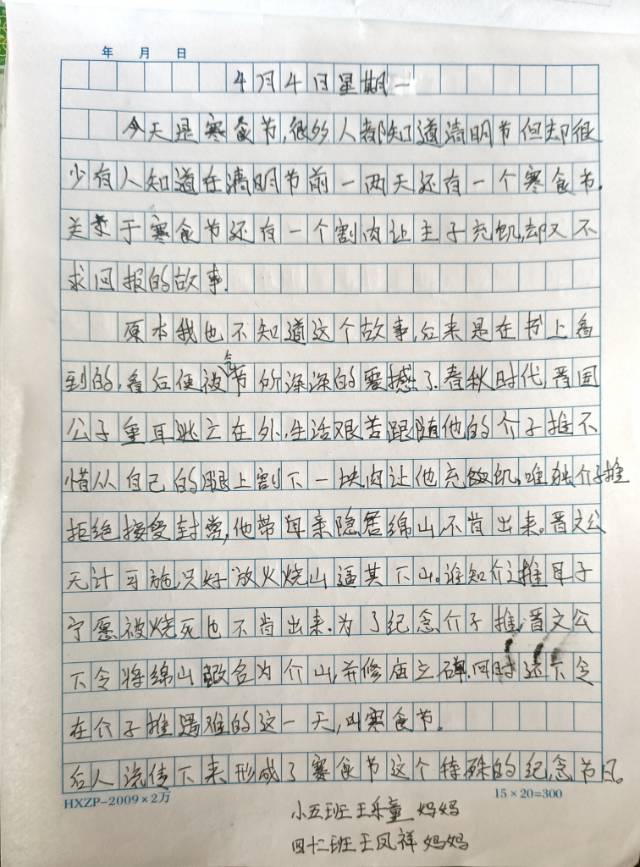 年 月 日
4月4日星期一
今天是寒食节,很多人都知道清明节但却很
少有人知道在清明节前一两天还有一个寒食节.
关于寒食节还有一个割肉让主子充饥,却又不
求回报的故事.
原本我也不知道这个故事,后来是在书上看
到的,看后便被节所深深的震撼了.春秋时代,晋国
公子重耳逃亡在外,生活艰苦跟随他的介子推不
惜从自己的腿上割下一块肉让他充饥,唯独介子推
拒绝接受封赏,他带母亲隐居绵山不肯出来。晋文公
无计可施,只好放火烧山逼其下山。谁知介子推母子
宁愿被烧死也不肯出来.为了纪念介子推,晋文公
下令将绵山改名为介山,并修庙立碑.同时还下令
在介子推遇难的这一天,叫寒食节。
后人流传下来形成了寒食节这个特殊的纪念节日
HXZP-2009×2万
15×20=300
小五班王乐童妈妈
四十二班王凤祥妈妈